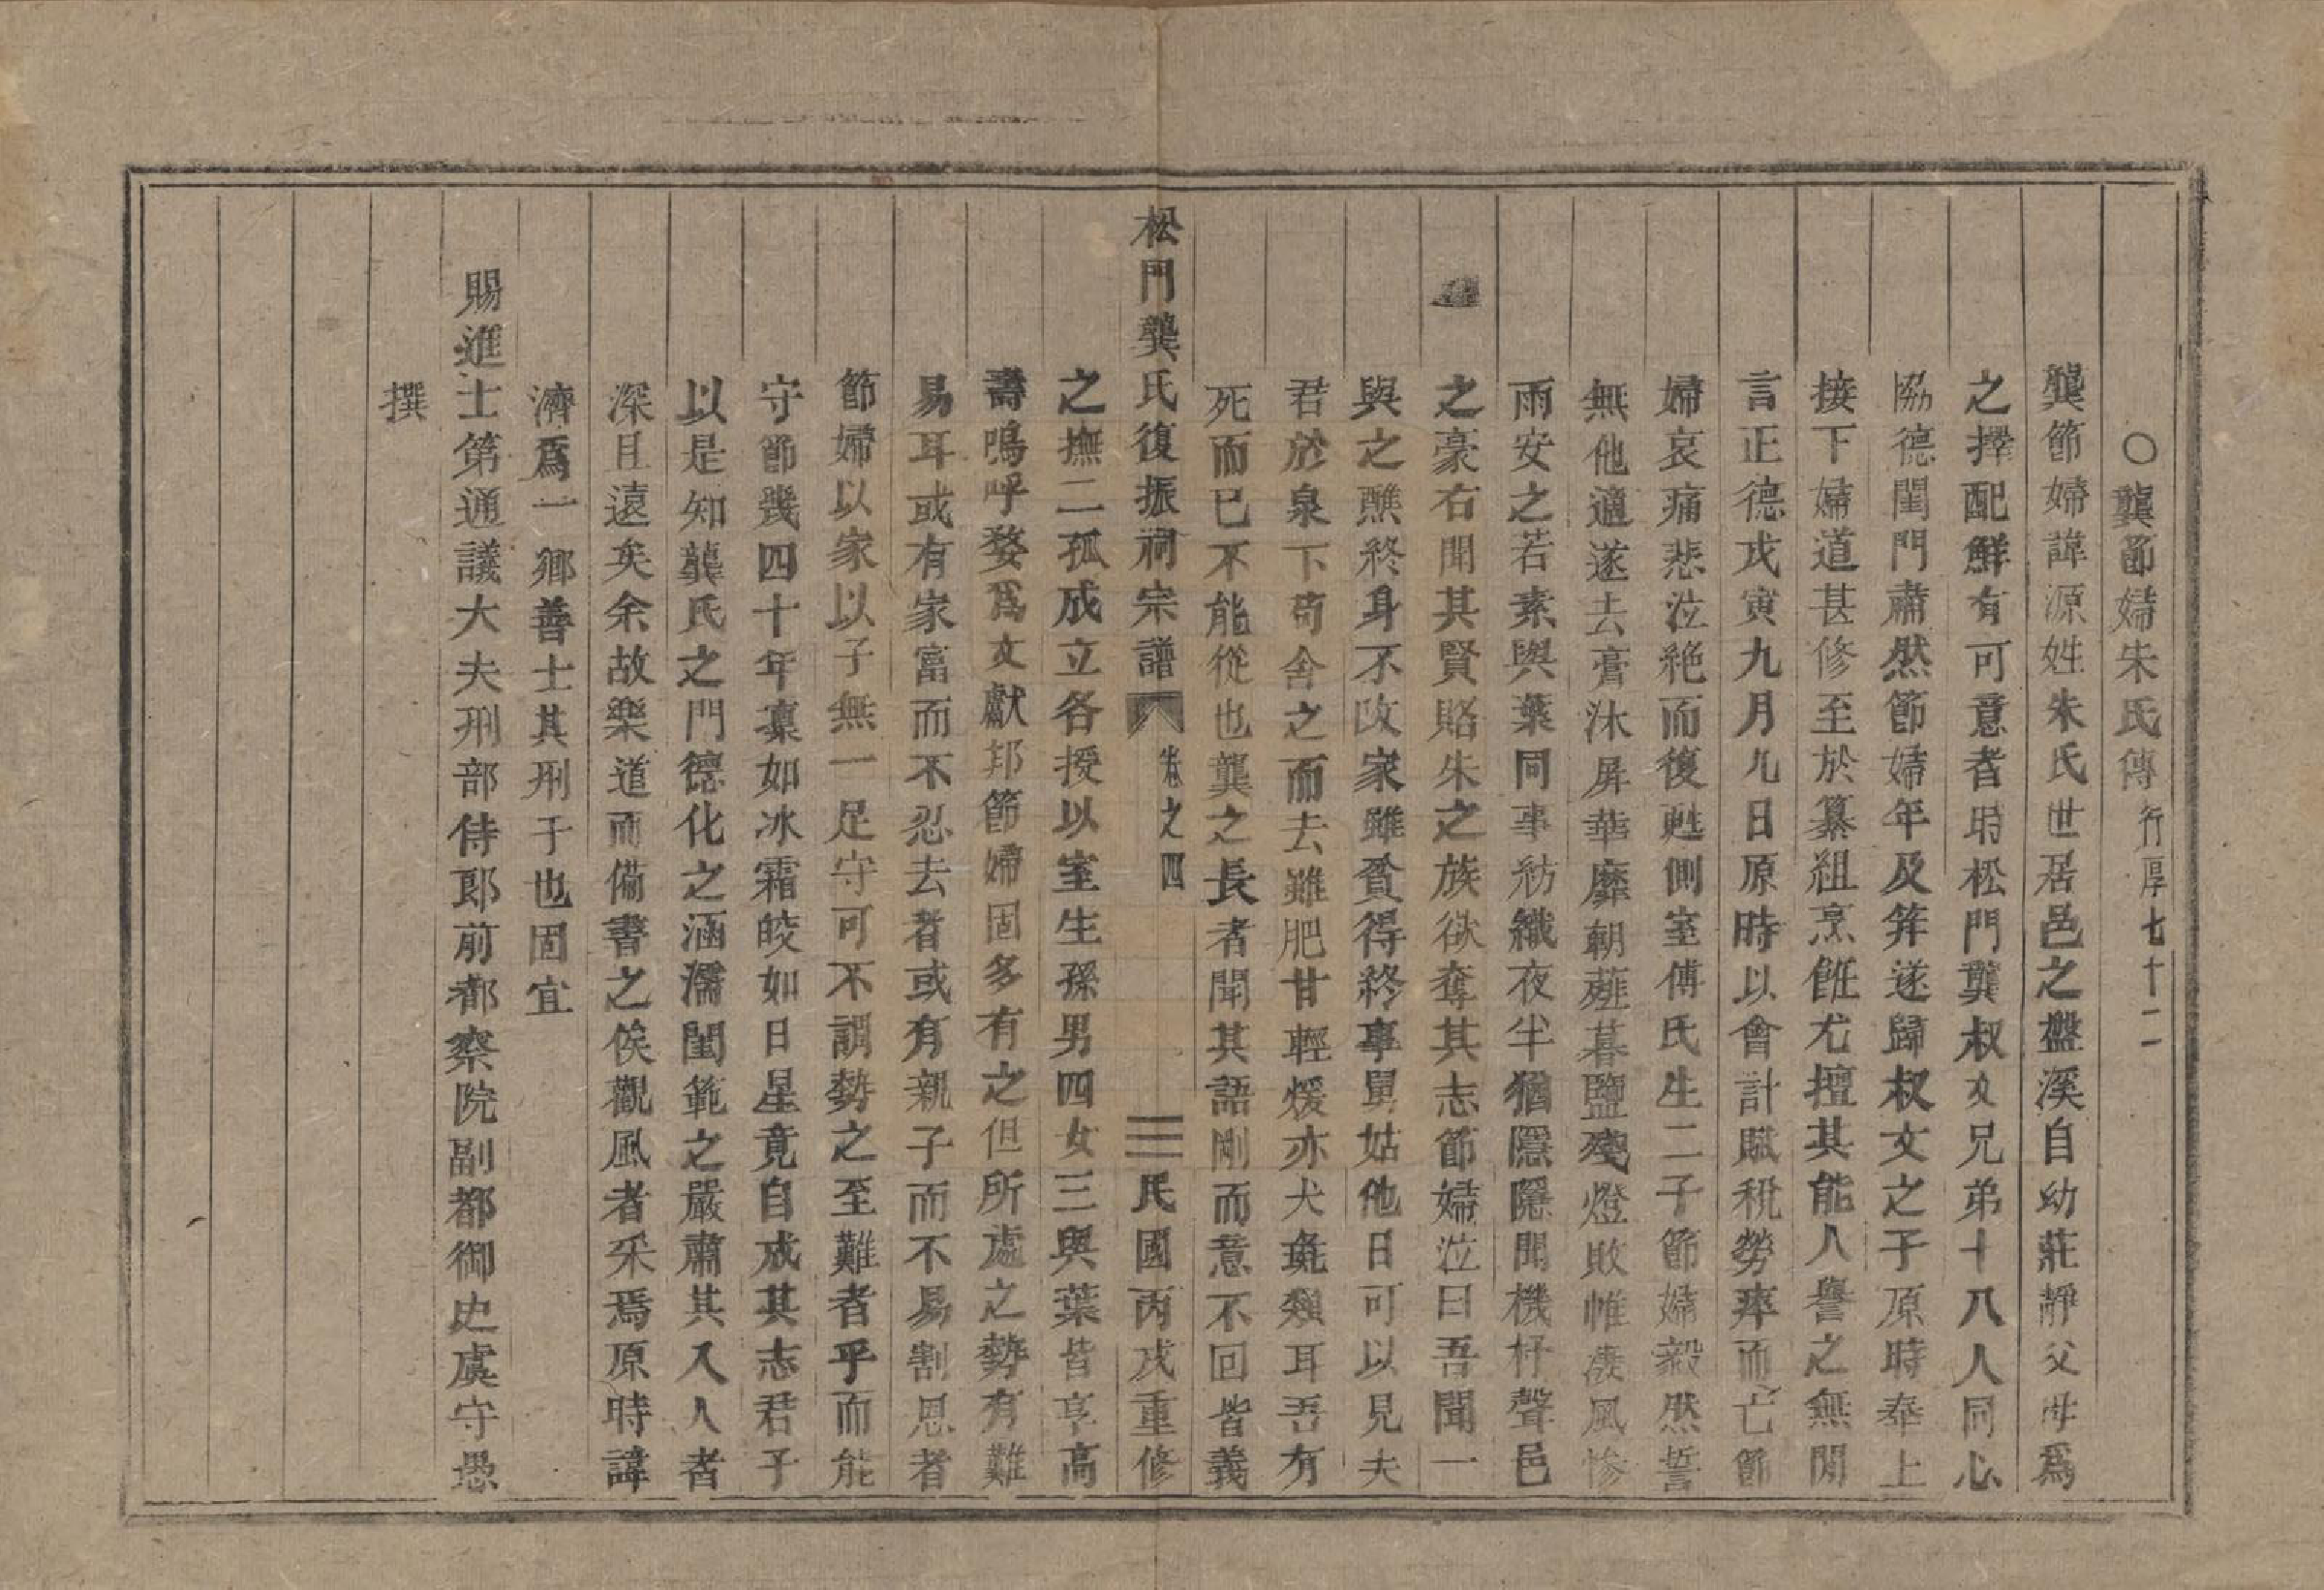 ○龔節婦朱氏傳行厚七十二
龔節婦諱源姓朱氏世居邑之盤溪自幼莊靜父母爲
之擇配鮮有可意者時松門龔叔文兄弟十八人同心
協德閨門肅然節婦年及笄遂歸叔文之子原時奉上
接下婦道甚修至於纂組烹飪尤擅其能人譽之無閒
言正德戊寅九月九日原時以會計賦稅勞瘁而亡節
婦哀痛悲泣絶而復甦側室傅氏生二子節婦毅然誓
無他適遂去膏沐屏華靡朝薤暮鹽殘燈敗帷凄風慘
雨安之若素與葉同事紡織夜半猶隱隱聞機杼聲邑
之豪右聞其賢賂朱之族欲奪其志節婦泣曰吾聞一
與之醮終身不改家雖貧得終事舅姑他日可以見夫
君於泉下苟舍之而去雖肥甘輕煖亦犬彘類耳吾有
死而已不能從也龔之長者聞其語剛而意不回皆義
松門龔氏復振祠宗譜 卷之四 民國丙戌重修
之撫二孤成立各授以室生孫男四女三與葉皆享高
壽嗚呼婺爲文獻邦節婦固多有之但所處之勢有難
易耳或有家富而不忍去者或有親子而不易割恩者
節婦以家以子無一足守可不謂勢之至難者乎而能
守節幾四十年凛如冰霜皎如日星竟自成其志君子
以是知龔氏之門德化之涵濡閨範之嚴肅其入人者
深且遠矣余故樂道而備書之俟觀風者采焉原時諱
濟爲一鄉善士其刑于也固宜
賜進士第通議大夫刑部侍郎前都察院副都御史虞守愚
撰